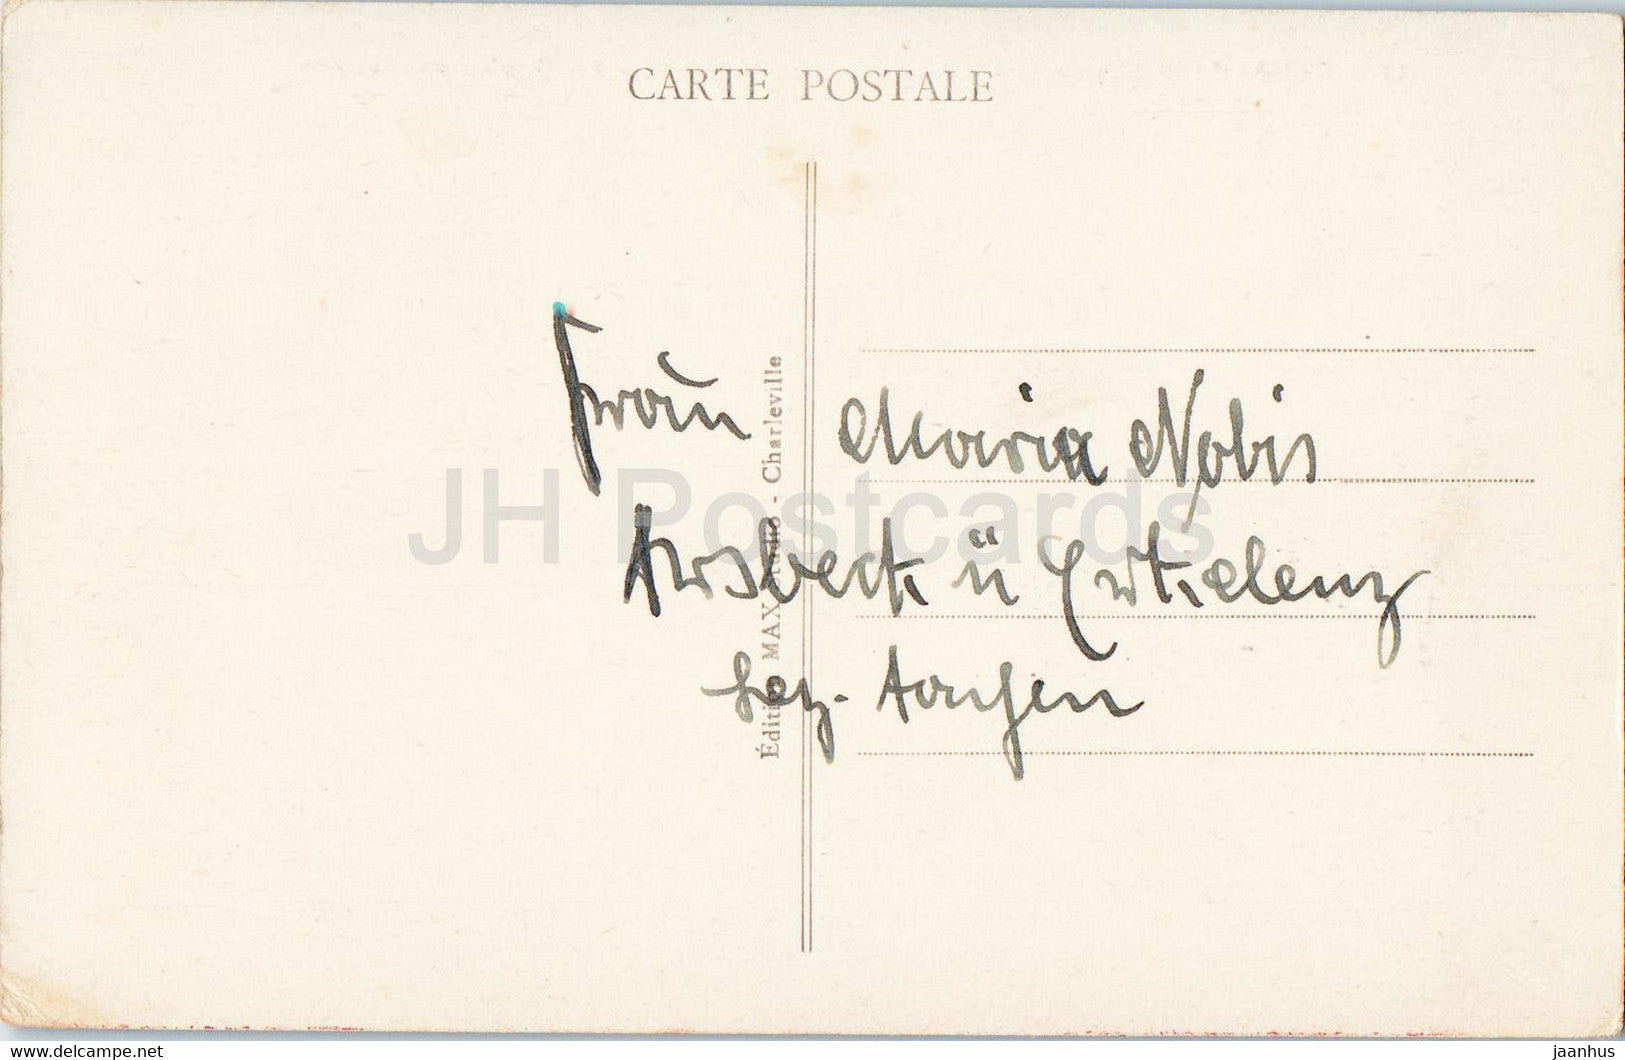 CARTE POSTALE
Frau Maria Nobis
Arsbeck ü Erkelenz
bez. Aachen
Éditions MAX Studio - Charleville
JH Postcards
www.delcampe.net
jaanhus